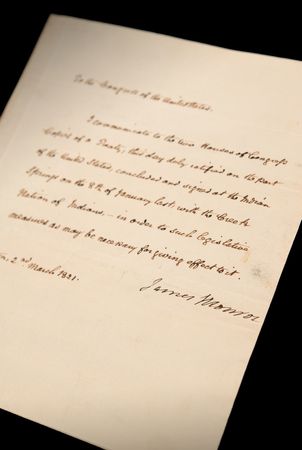 To the Congress of the United States.
I communicate to the two Houses of Congress
Copies of a Treaty, this day duly ratified on the part
of the United States, concluded and signed at the Indian
Springs on the 8th of January last, with the Creek
Nation of Indians – in order to such legislative
measures as may be necessary for giving effect to it.
2nd March 1821.
James Monroe